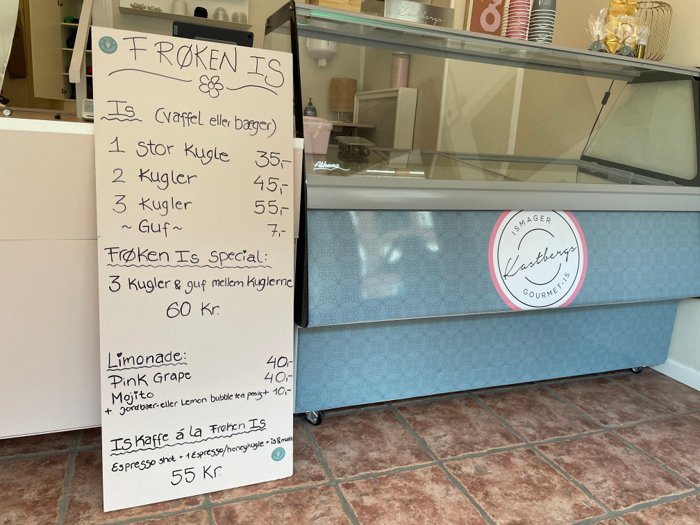 FRØKEN IS
Is (vaffel eller bæger)
1 stor Kugle 35,-
2 Kugler 45,-
3 Kugler 55,-
~ Guf ~ 7,-
Frøken Is special:
3 Kugler & guf mellem Kuglerne
60 Kr.
Limonade:
Pink Grape 40,-
Mojito 40,-
+ jordbær- eller Lemon bubble tea + 10,-
Is Kaffe á la Frøken Is
Espresso shot + 1 Espresso/honey kugle + is &
55 Kr.
Athena
ISMAGER
Kastbergs
GOURMET-IS
Kastbergs